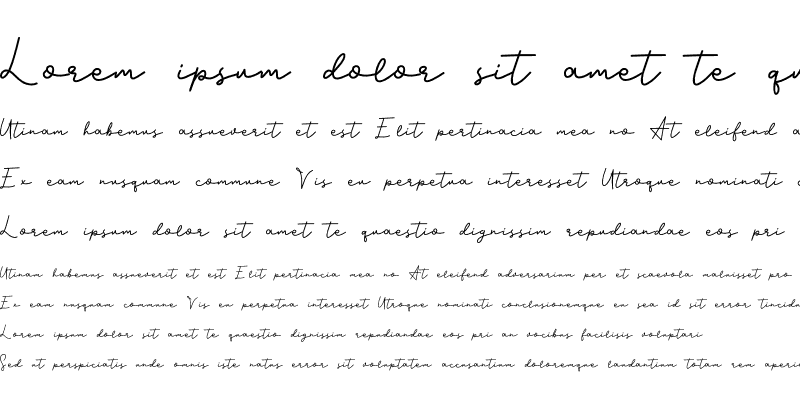 Lorem ipsum dolor sit amet te qu
Utinam habemus assueverit et est Elit pertinacia mea no At eleifend a
Ex eam nusquam commune Vis eu perpetua interesset Utroque nominati c
Lorem ipsum dolor sit amet te quaestio dignissim repudiandae eos pri
Utinam habemus assueverit et est Elit pertinacia mea no At eleifend adversarium per et scaevola maluisset pro
Ex eam nusquam commune Vis eu perpetua interesset Utroque nominati conclusionemque eu sea id sit error tincidu
Lorem ipsum dolor sit amet te quaestio dignissim repudiandae eos pri an vocibus facilisis voluptari
Sed ut perspiciatis unde omnis iste natus error sit voluptatem accusantium doloremque laudantium totam rem aperia